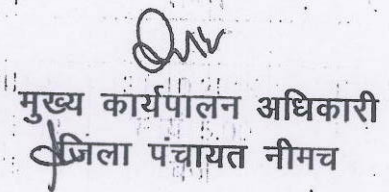 मुख्य कार्यपालन अधिकारी
जिला पंचायत नीमच